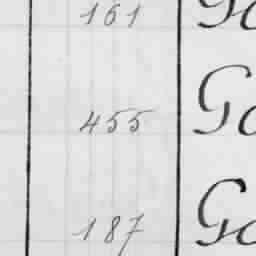 161 Go
455 Go
187 Go